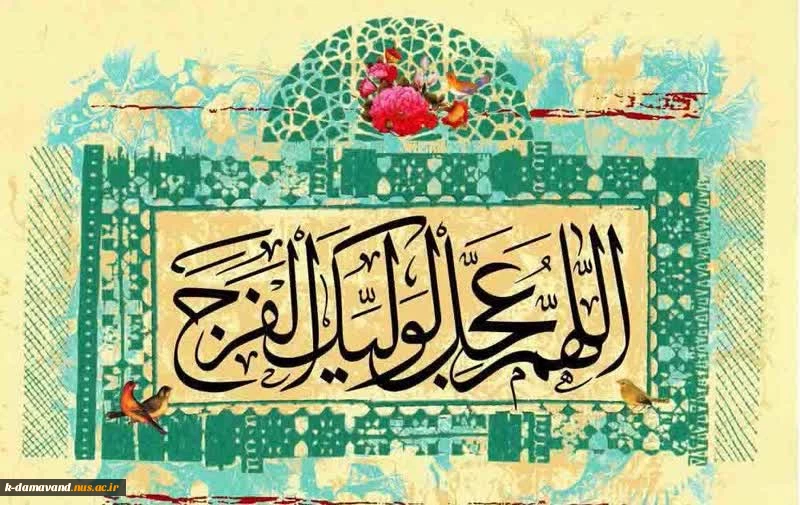 اللّٰهُمَّ عَجِّلْ لِوَلِيِّكَ الْفَرَجَ
k-damavand.nus.ac.ir